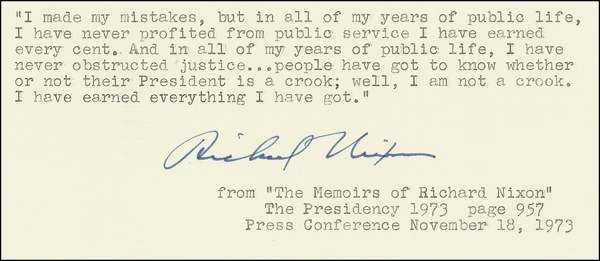 "I made my mistakes, but in all of my years of public life,
I have never profited from public service I have earned
every cent. And in all of my years of public life, I have
never obstructed justice...people have got to know whether
or not their President is a crook; well, I am not a crook.
I have earned everything I have got."
Richard Nixon
from "The Memoirs of Richard Nixon"
The Presidency 1973 page 957
Press Conference November 18, 1973